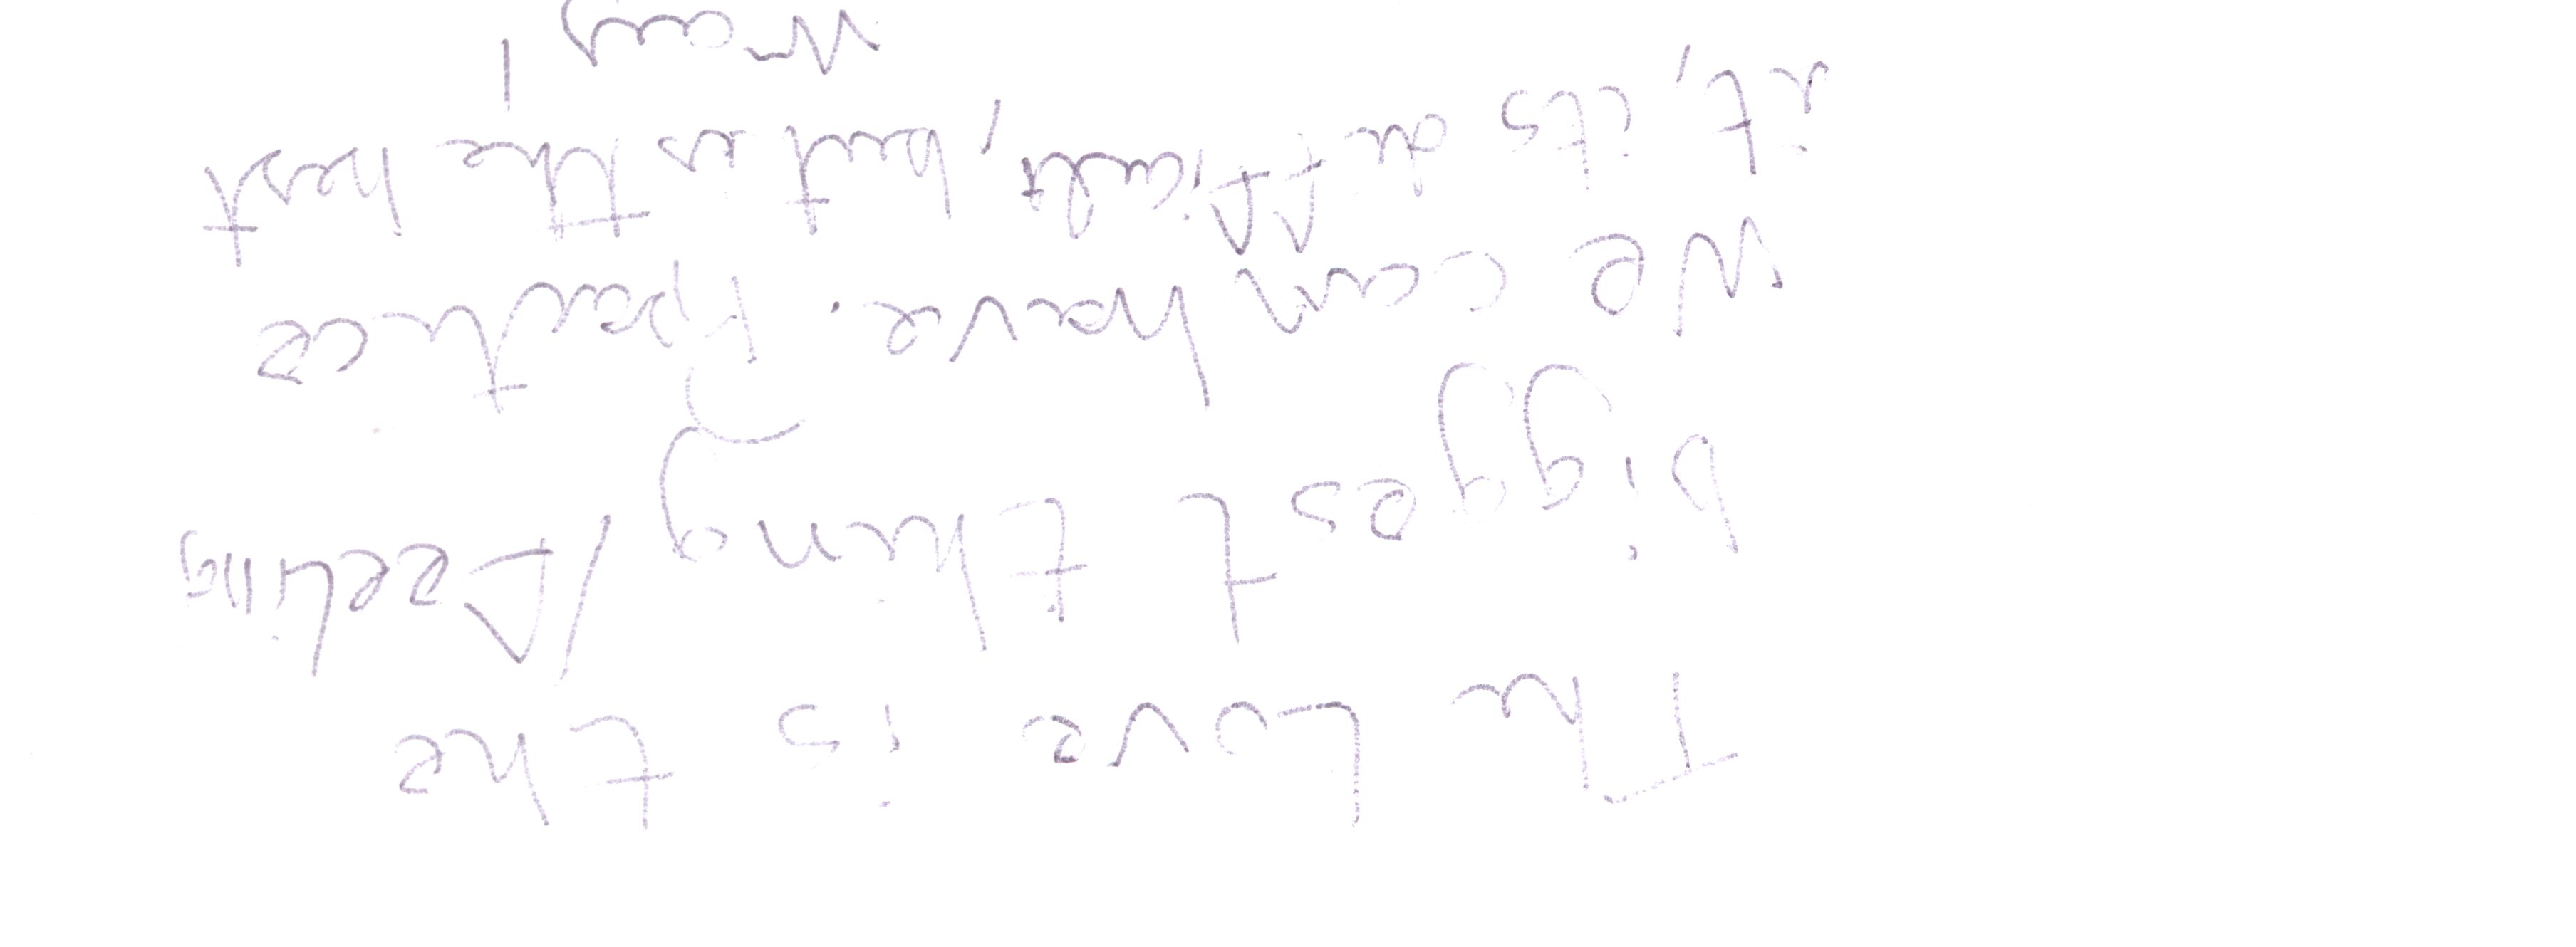 The Love is the
biggest thing/feeling
we can have. Practice
it, its difficult, but is the best
way!